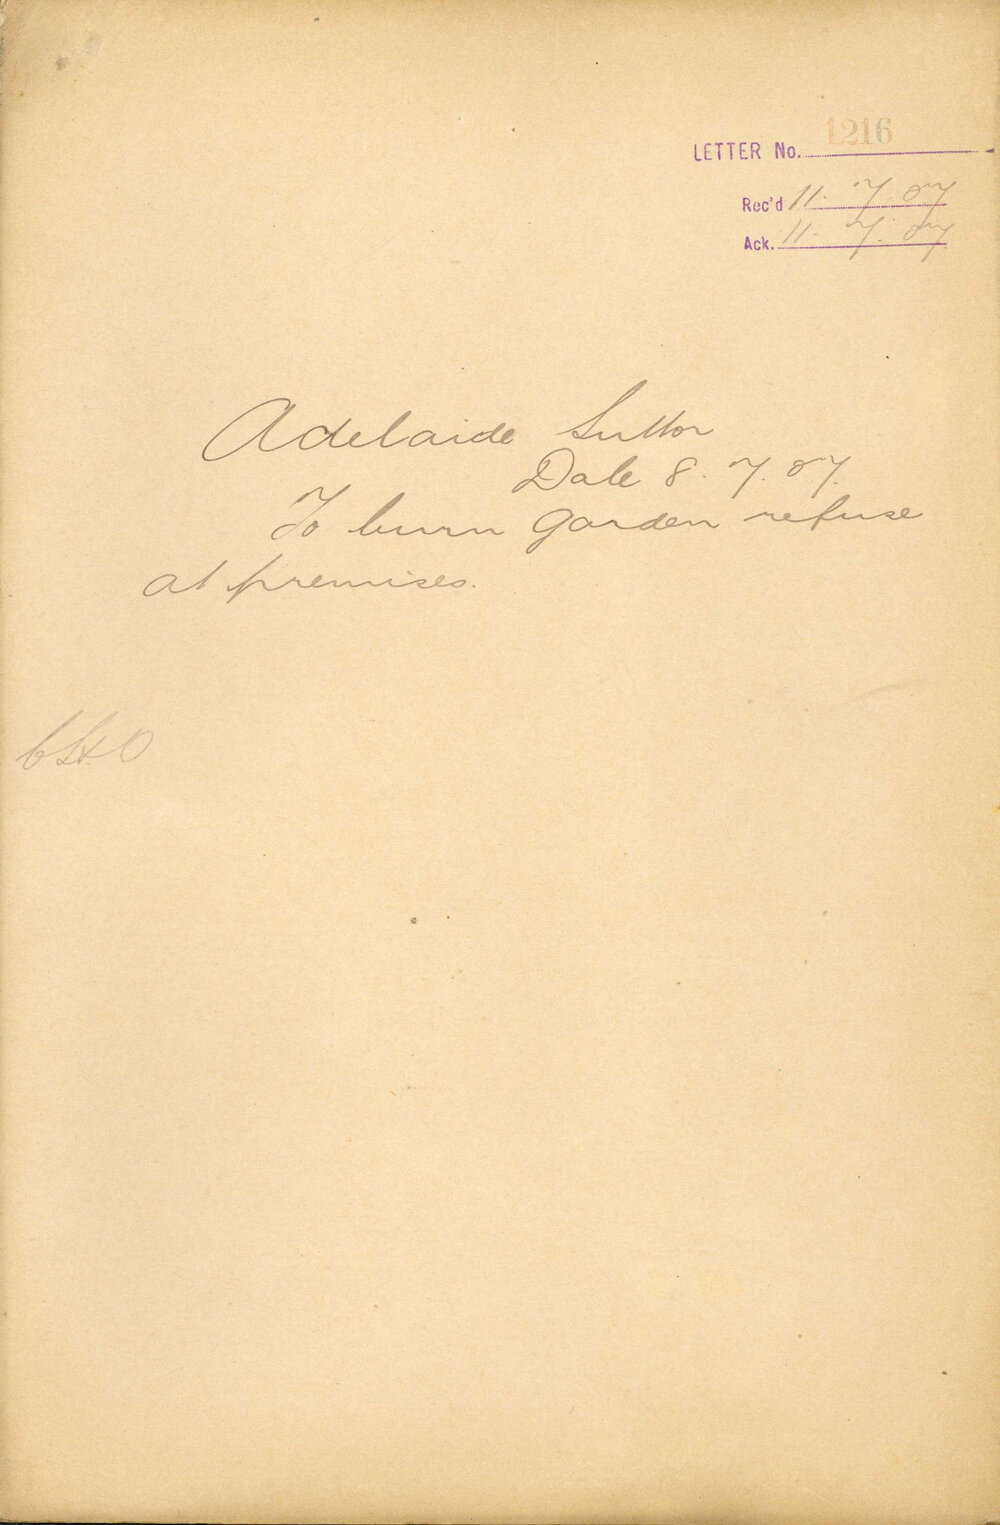 LETTER No. 1216
Rec'd 11. 7. 07
Ack. 11. 7. 07
Adelaide Suttor
Date 8. 7. 07.
To burn garden refuse
at premises.